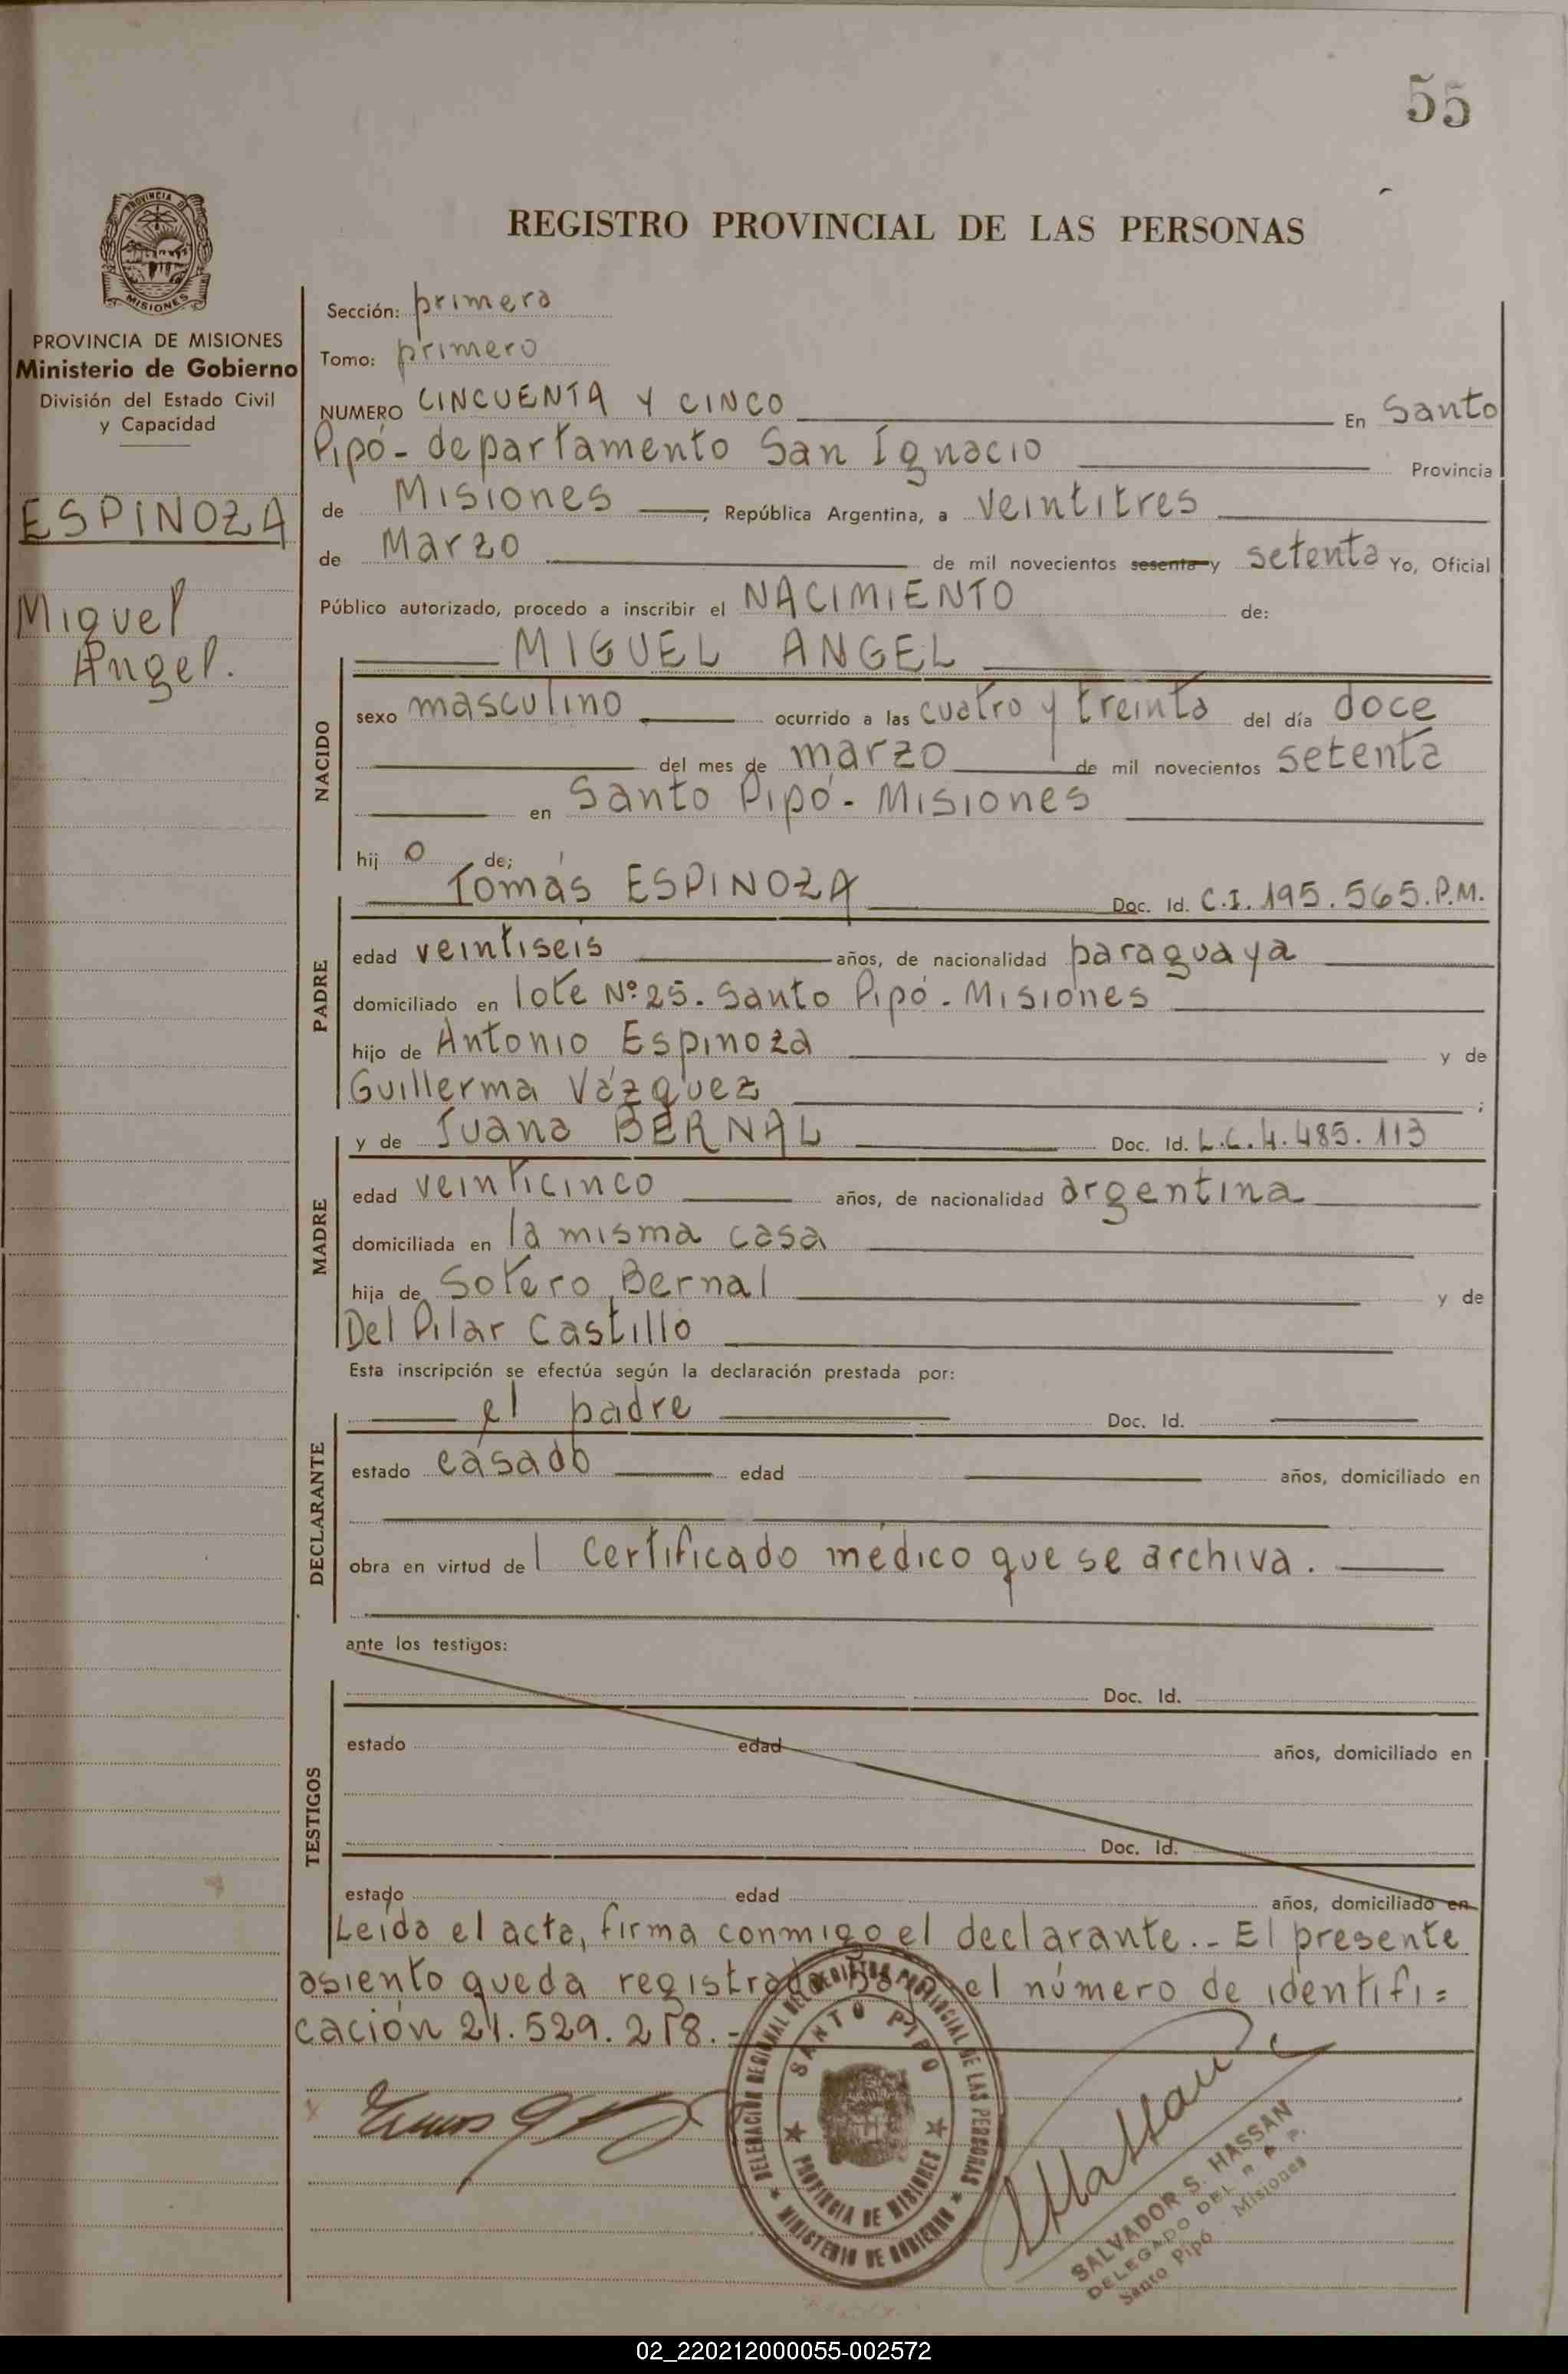 55
REGISTRO PROVINCIAL DE LAS PERSONAS
PROVINCIA DE
MISIONES
PROVINCIA DE MISIONES
Ministerio de Gobierno
División del Estado Civil
y Capacidad
ESPINOZA
Miguel
Angel.
Sección: primera
Tomo: primero
NUMERO CINCUENTA Y CINCO En Santo
Pipó - departamento San Ignacio Provincia
de Misiones, República Argentina, a veintitres
de Marzo de mil novecientos sesenta y setenta Yo, Oficial
Público autorizado, procedo a inscribir el NACIMIENTO de:
MIGUEL ANGEL
NACIDO
sexo masculino ocurrido a las cuatro y treinta del día doce
del mes de marzo de mil novecientos setenta
en Santo Pipó - Misiones
hij o de;
Tomás ESPINOZA Doc. Id. C.I. 195.565.P.M.
PADRE
edad veintiseis años, de nacionalidad paraguaya
domiciliado en lote Nº 25. Santo Pipó - Misiones
hijo de Antonio Espinoza y de
Guillerma Vázquez ;
y de Juana BERNAL Doc. Id. L.C. 4.485.113
MADRE
edad veinticinco años, de nacionalidad argentina
domiciliada en la misma casa
hija de Sotero Bernal y de
Del Pilar Castillo
Esta inscripción se efectúa según la declaración prestada por:
el padre Doc. Id.
DECLARANTE
estado casado edad años, domiciliado en
obra en virtud de l certificado médico que se archiva.
ante los testigos:
Doc. Id.
TESTIGOS
estado edad años, domiciliado en
Doc. Id.
estado edad años, domiciliado en
Leída el acta, firma conmigo el declarante.- El presente
asiento queda registrado bajo el número de identifi=
cación 21.529.218.-
DELEGACIÓN REGIONAL DEL REGISTRO PROVINCIAL DE LAS PERSONAS
SANTO PIPO
PROVINCIA DE MISIONES
MINISTERIO DE GOBIERNO
SALVADOR S. HASSAN
DELEGADO DEL R. P. P.
Santo Pipó - Misiones
02_220212000055-002572